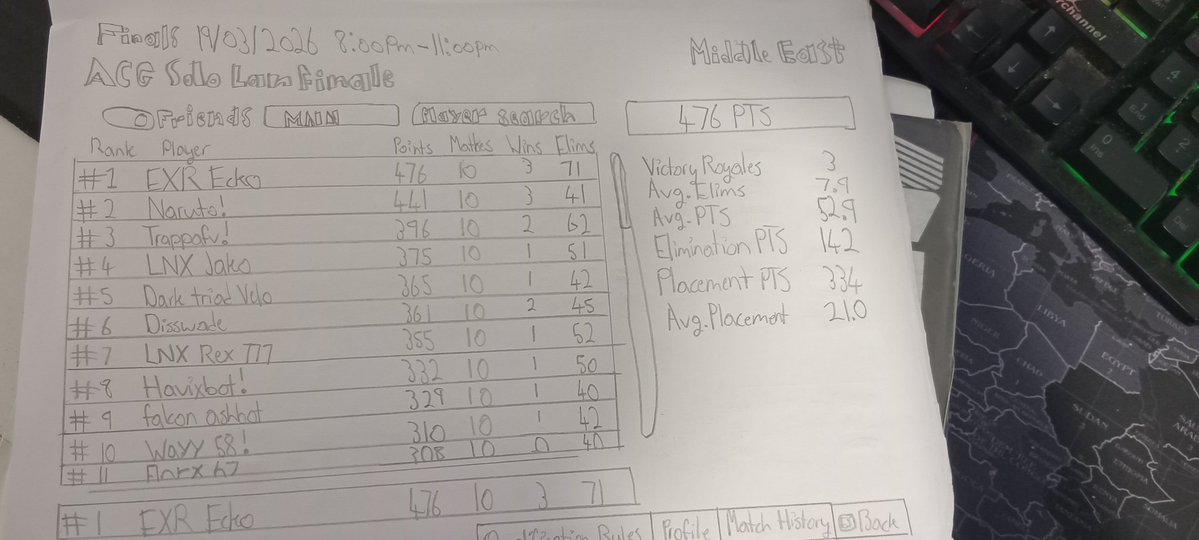 Finals 19/03/2026 8:00Pm-11:00pm
Middle East
ACG Solo Lan Finale
Friends MAIN Player Search
476 PTS
Rank Player Points Mathes Wins Elims
#1 EXR Ecko 476 10 3 71
#2 Naruto! 441 10 3 41
#3 Trappafv! 396 10 2 62
#4 LNX Jako 375 10 1 51
#5 Dark triad Velo 365 10 1 42
#6 Disswade 361 10 2 45
#7 LNX Rex 777 355 10 1 52
#8 Havixbot! 332 10 1 50
#9 falcon ashhat 329 10 1 40
#10 Wayy 58! 310 10 1 42
#11 308 10 0 40
#1 EXR Ecko 476 10 3 71
Victory Royales 3
Avg. Elims 7.9
Avg. PTS 52.9
Elimination PTS 142
Placement PTS 334
Avg. Placement 21.0
Rules Profile Match History Back
channel
4
1
End
0
Ins
LIBYA
EGYPT
SUDAN
NIGER
CHAD
TURKEY